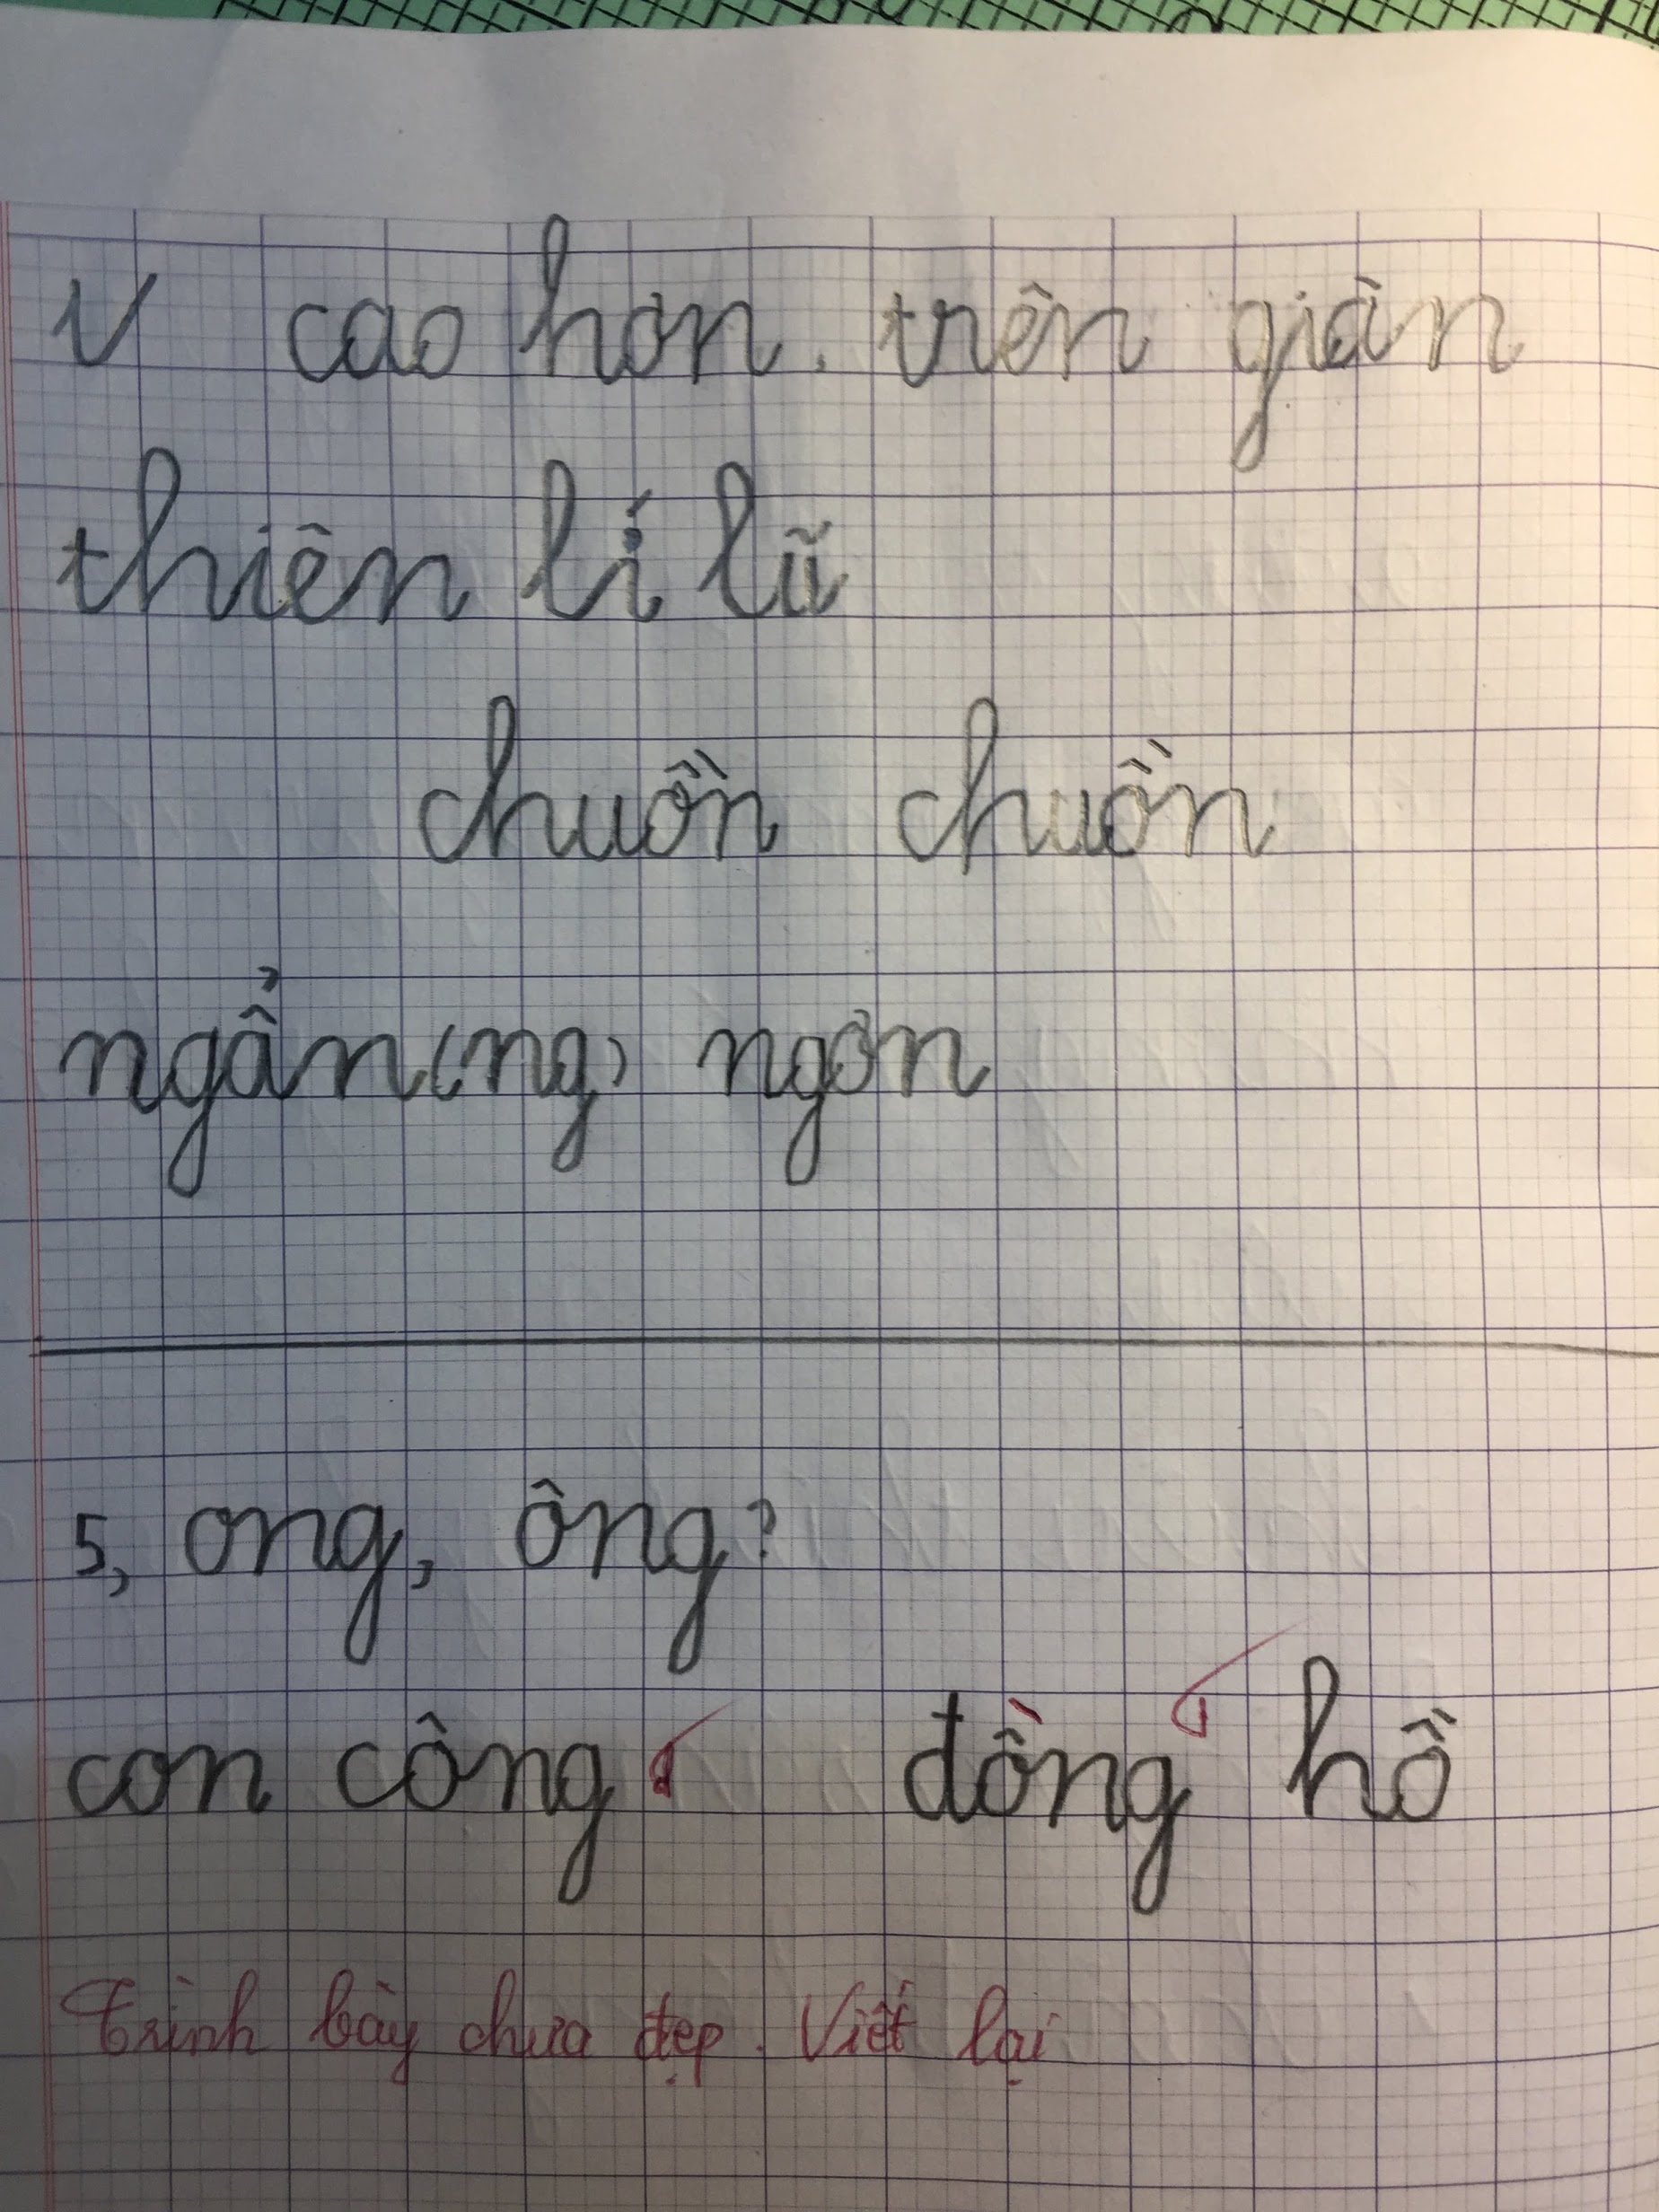 v cao hơn. trên giàn
thiên lí lũ
chuồn chuồn
ngẩn(ng) ngơn
5, ong, ông?
con công đồng hồ
Trình bày chưa đẹp. Viết lại